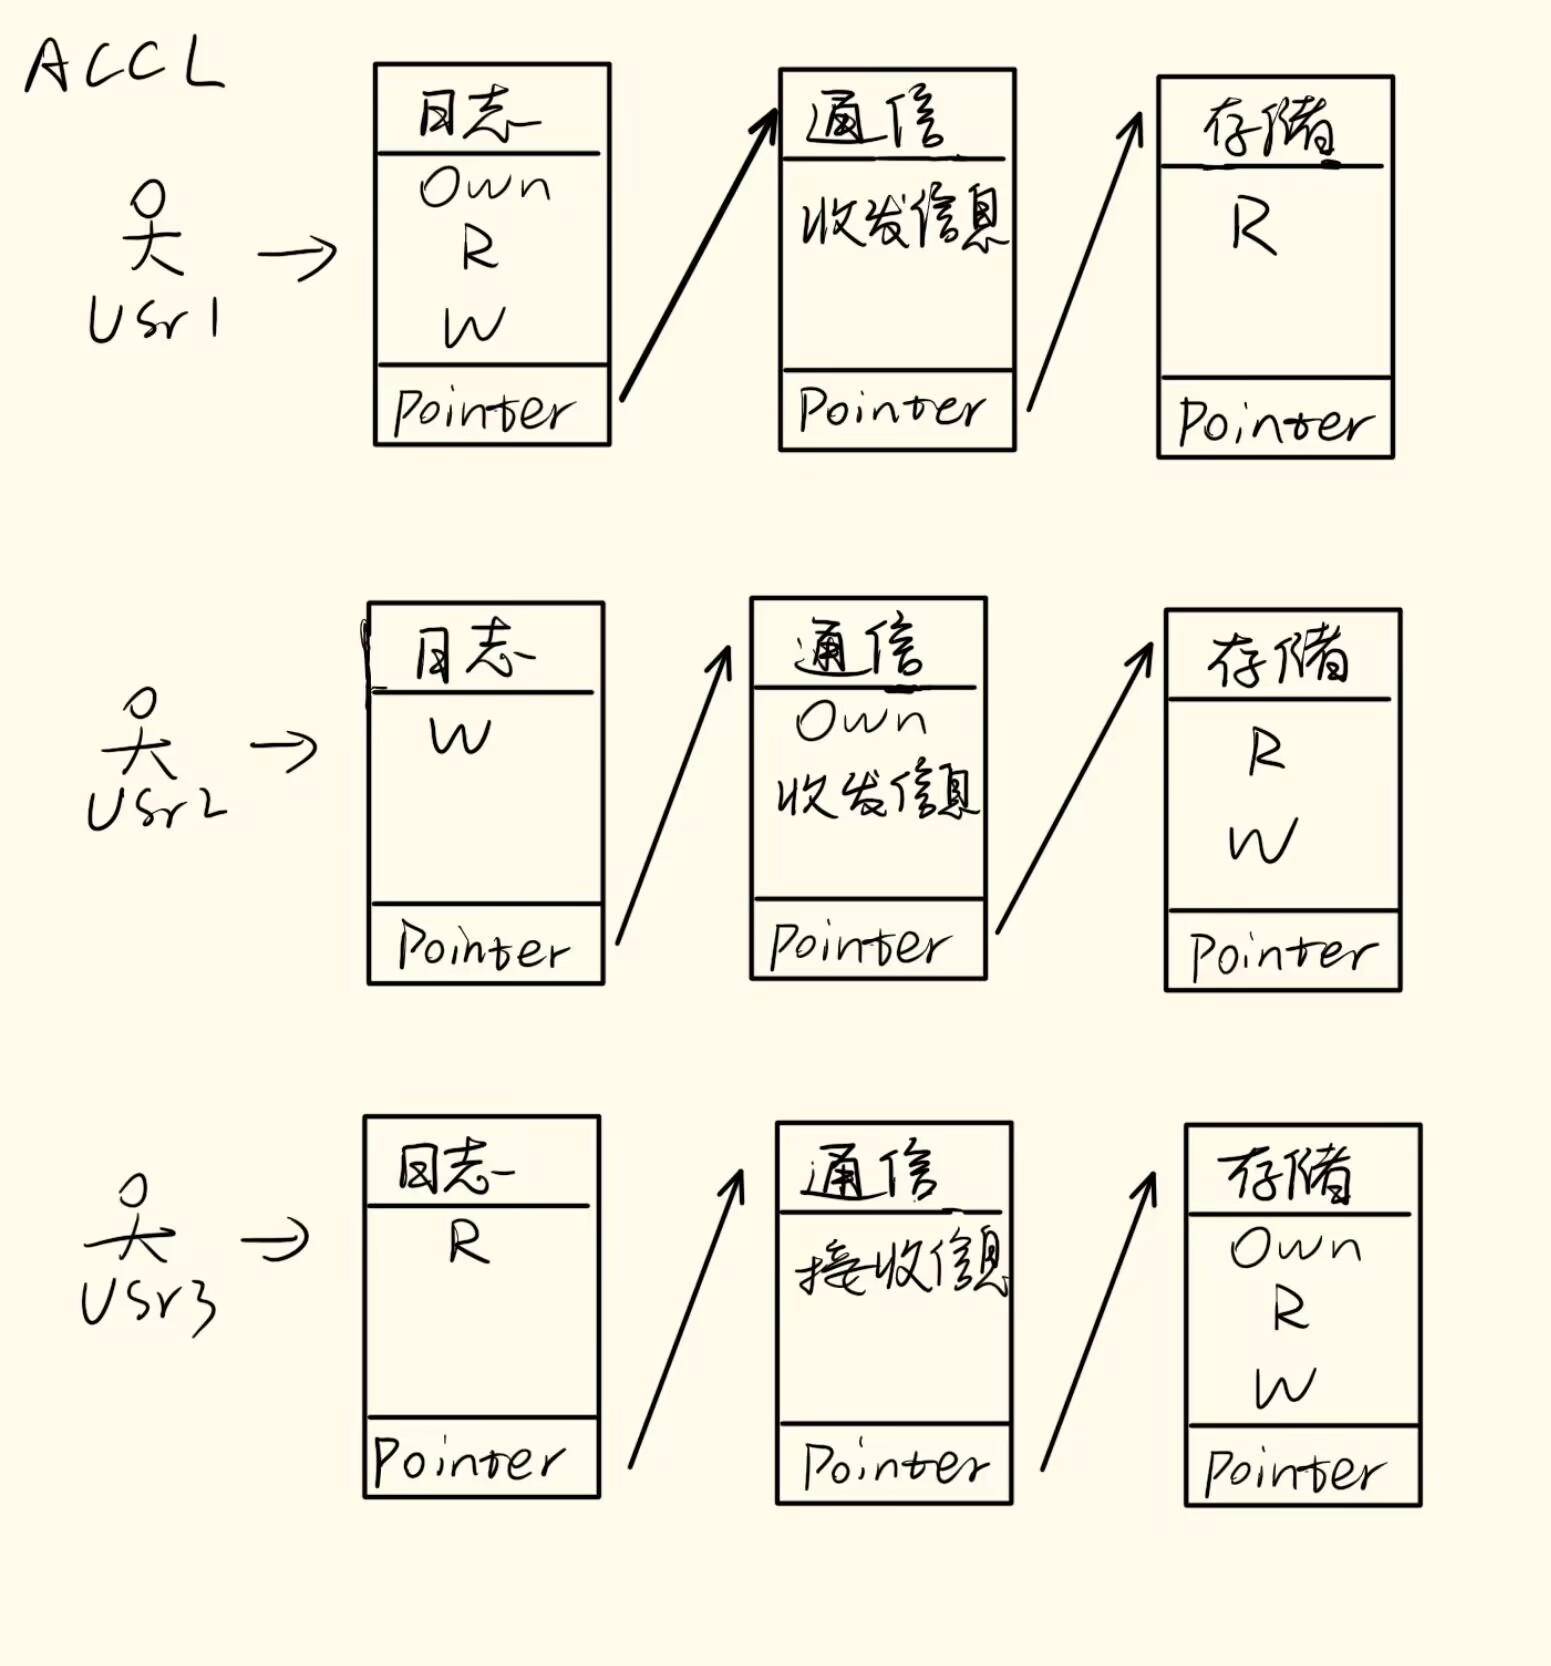 ACCL
Usr1
日志
Own
R
W
Pointer
通信
收发信息
Pointer
存储
R
Pointer
Usr2
日志
W
Pointer
通信
Own
收发信息
Pointer
存储
R
W
Pointer
Usr3
日志
R
Pointer
通信
接收信息
Pointer
存储
Own
R
W
Pointer